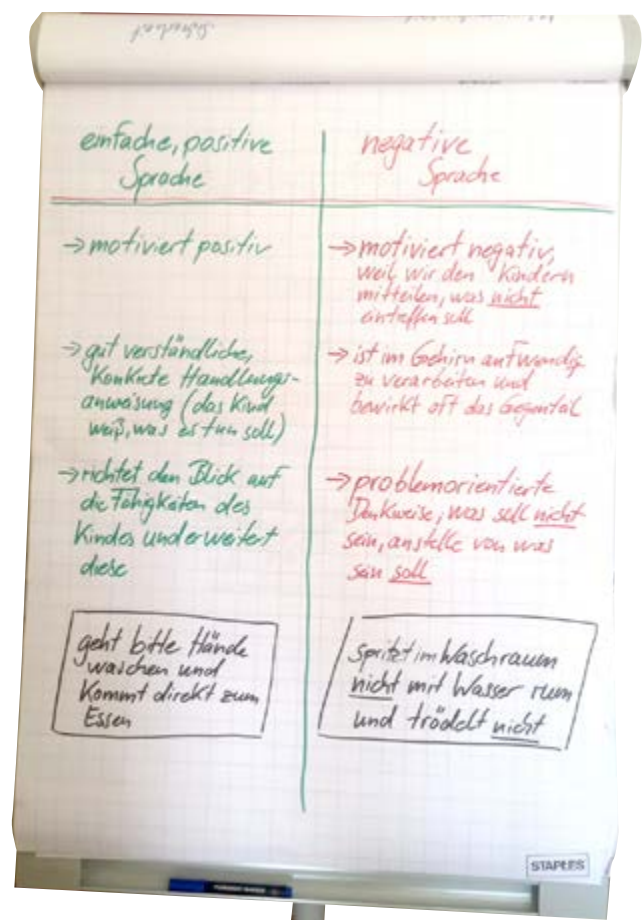 einfache, positive
Sprache
→ motiviert positiv
→ gut verständliche,
konkrete Handlungs-
anweisung (das Kind
weiß, was es tun soll)
→ richtet den Blick auf
die Fähigkeiten des
Kindes und erweitert
diese
geht bitte Hände
waschen und
kommt direkt zum
Essen
negative
Sprache
→ motiviert negativ,
weil wir den Kindern
mitteilen, was nicht
eintreffen soll
→ ist im Gehirn aufwendig
zu verarbeiten und
bewirkt oft das Gegenteil
→ problemorientierte
Denkweise, was soll nicht
sein, anstelle von was
sein soll
Spritzt im Waschraum
nicht mit Wasser rum
und trödelt nicht
STAPLES